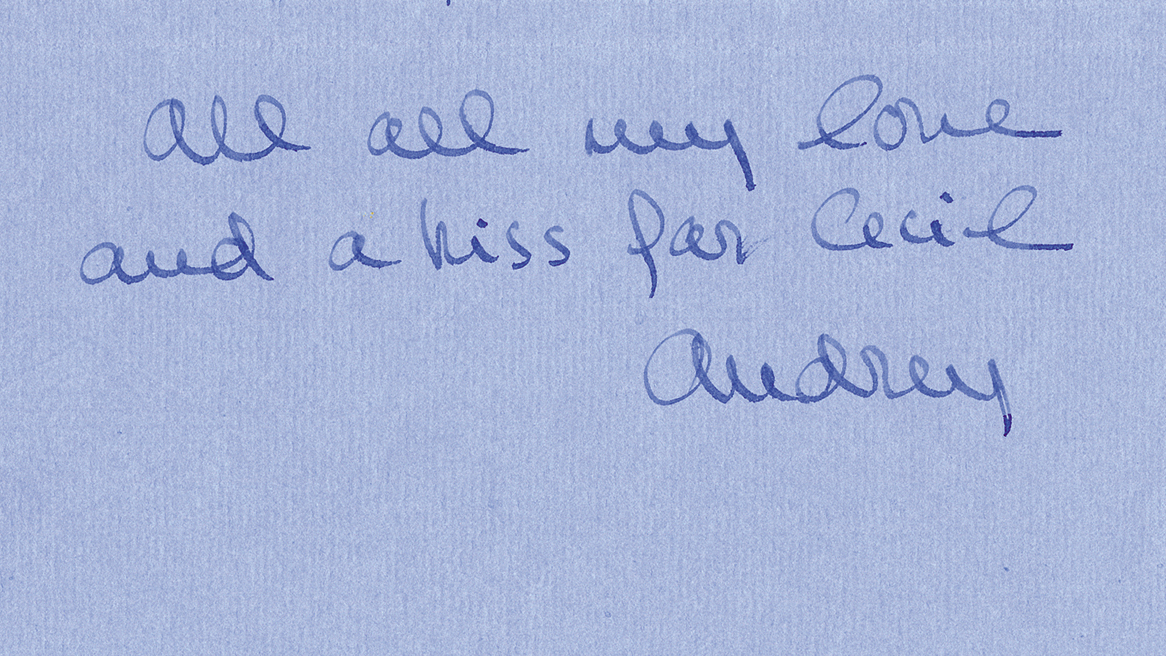 All all my love
and a kiss for Cecil
Audrey